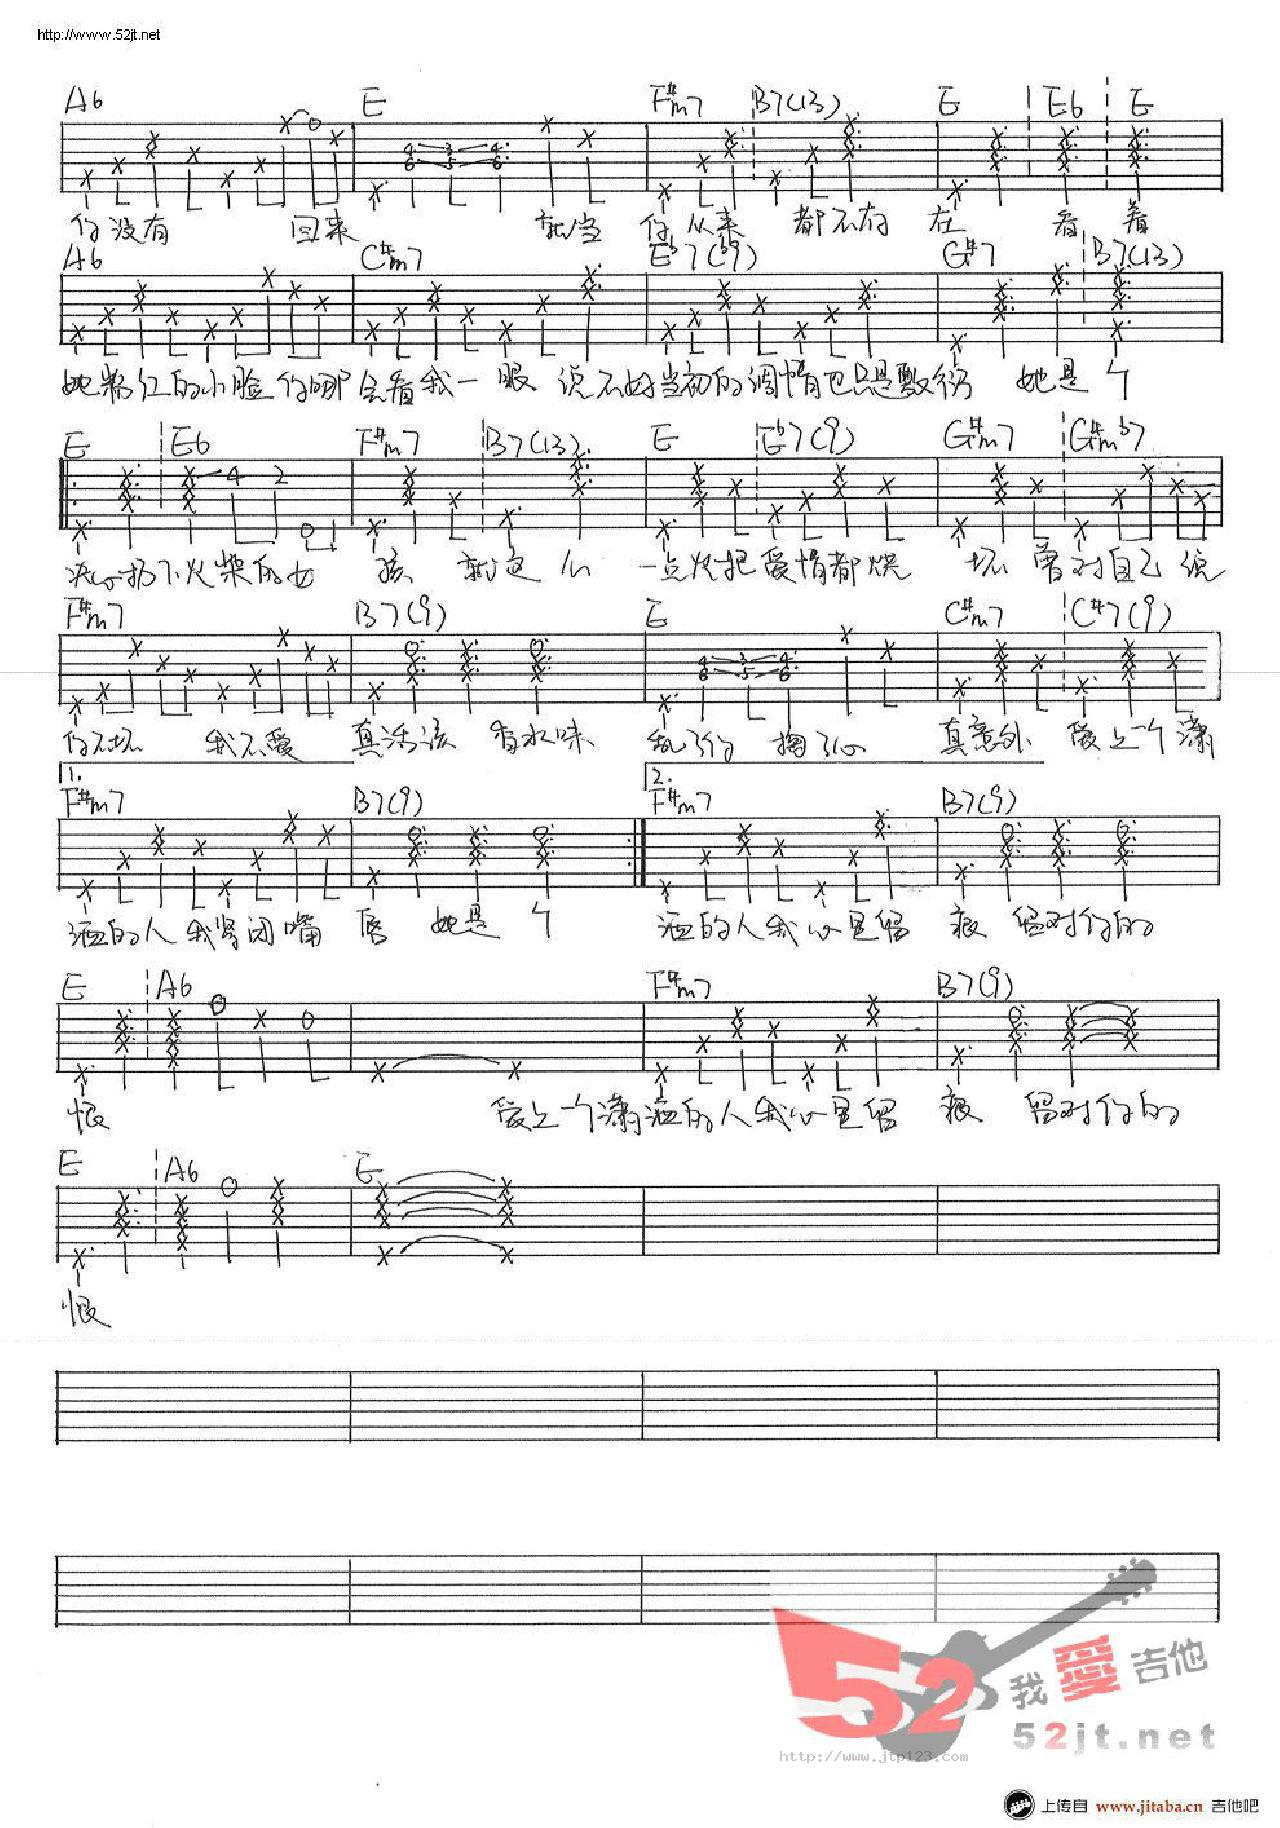 http://www.52jt.net
A6 E F#m7 B7(13) E E6 E
你没有 回来 就当 你从来 都不存在 看着
A6 C#m7 Eb7(b9) G#7 B7(13)
她粉红的小脸 你哪会看我一眼 说不好当初的调情也只是敷衍 她是个
E E6 F#m7 B7(13) E Eb7(9) G#m7 G#mb7
4 2
决心扔下火柴的女 孩 就这么 一点火把爱情都烧 坏 曾对自己说
F#m7 B7(9) E C#m7 C#7(9)
你不坏 我不爱 真活该 有水味 乱了你 掏了心 真意外 爱上一个潇
1. 2.
F#m7 B7(9) F#m7 B7(9)
洒的人 我紧闭嘴 唇 她是个 洒的人我心里留 痕 留对你的
E A6 F#m7 B7(9)
恨 爱上一个潇洒的人我心里留 痕 留对你的
E A6 E
恨
52 我愛吉他
52jt.net
http://www.jtp123.com
上传自 www.jitaba.cn 吉他吧